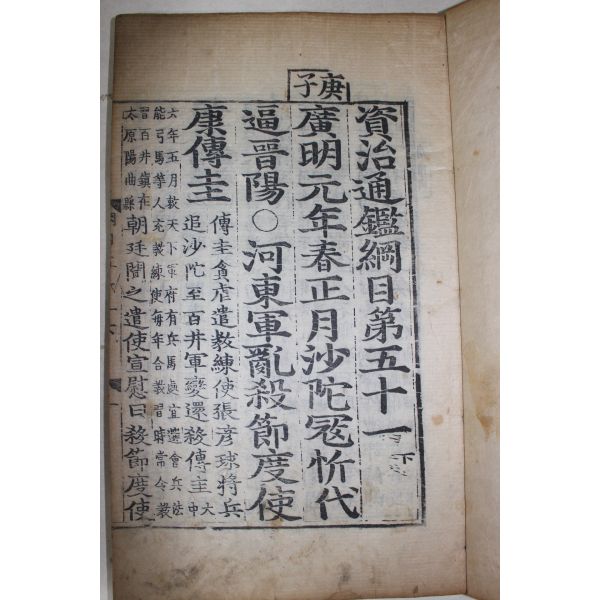 庚子
資治通鑑綱目第五十一
廣明元年春正月沙陀寇忻代
逼晉陽○河東軍亂殺節度使
康傳圭
傳圭貪虐遣教練使張彦球將兵
追沙陀至百井軍變還殺傳圭
大
中
六年五月敕天下軍府有兵馬處宜選會兵法
能弓馬等人充教練使每年合教習時常令教
習百井鎮在
太原陽曲縣
朝廷聞之遣使宣慰曰殺節度使